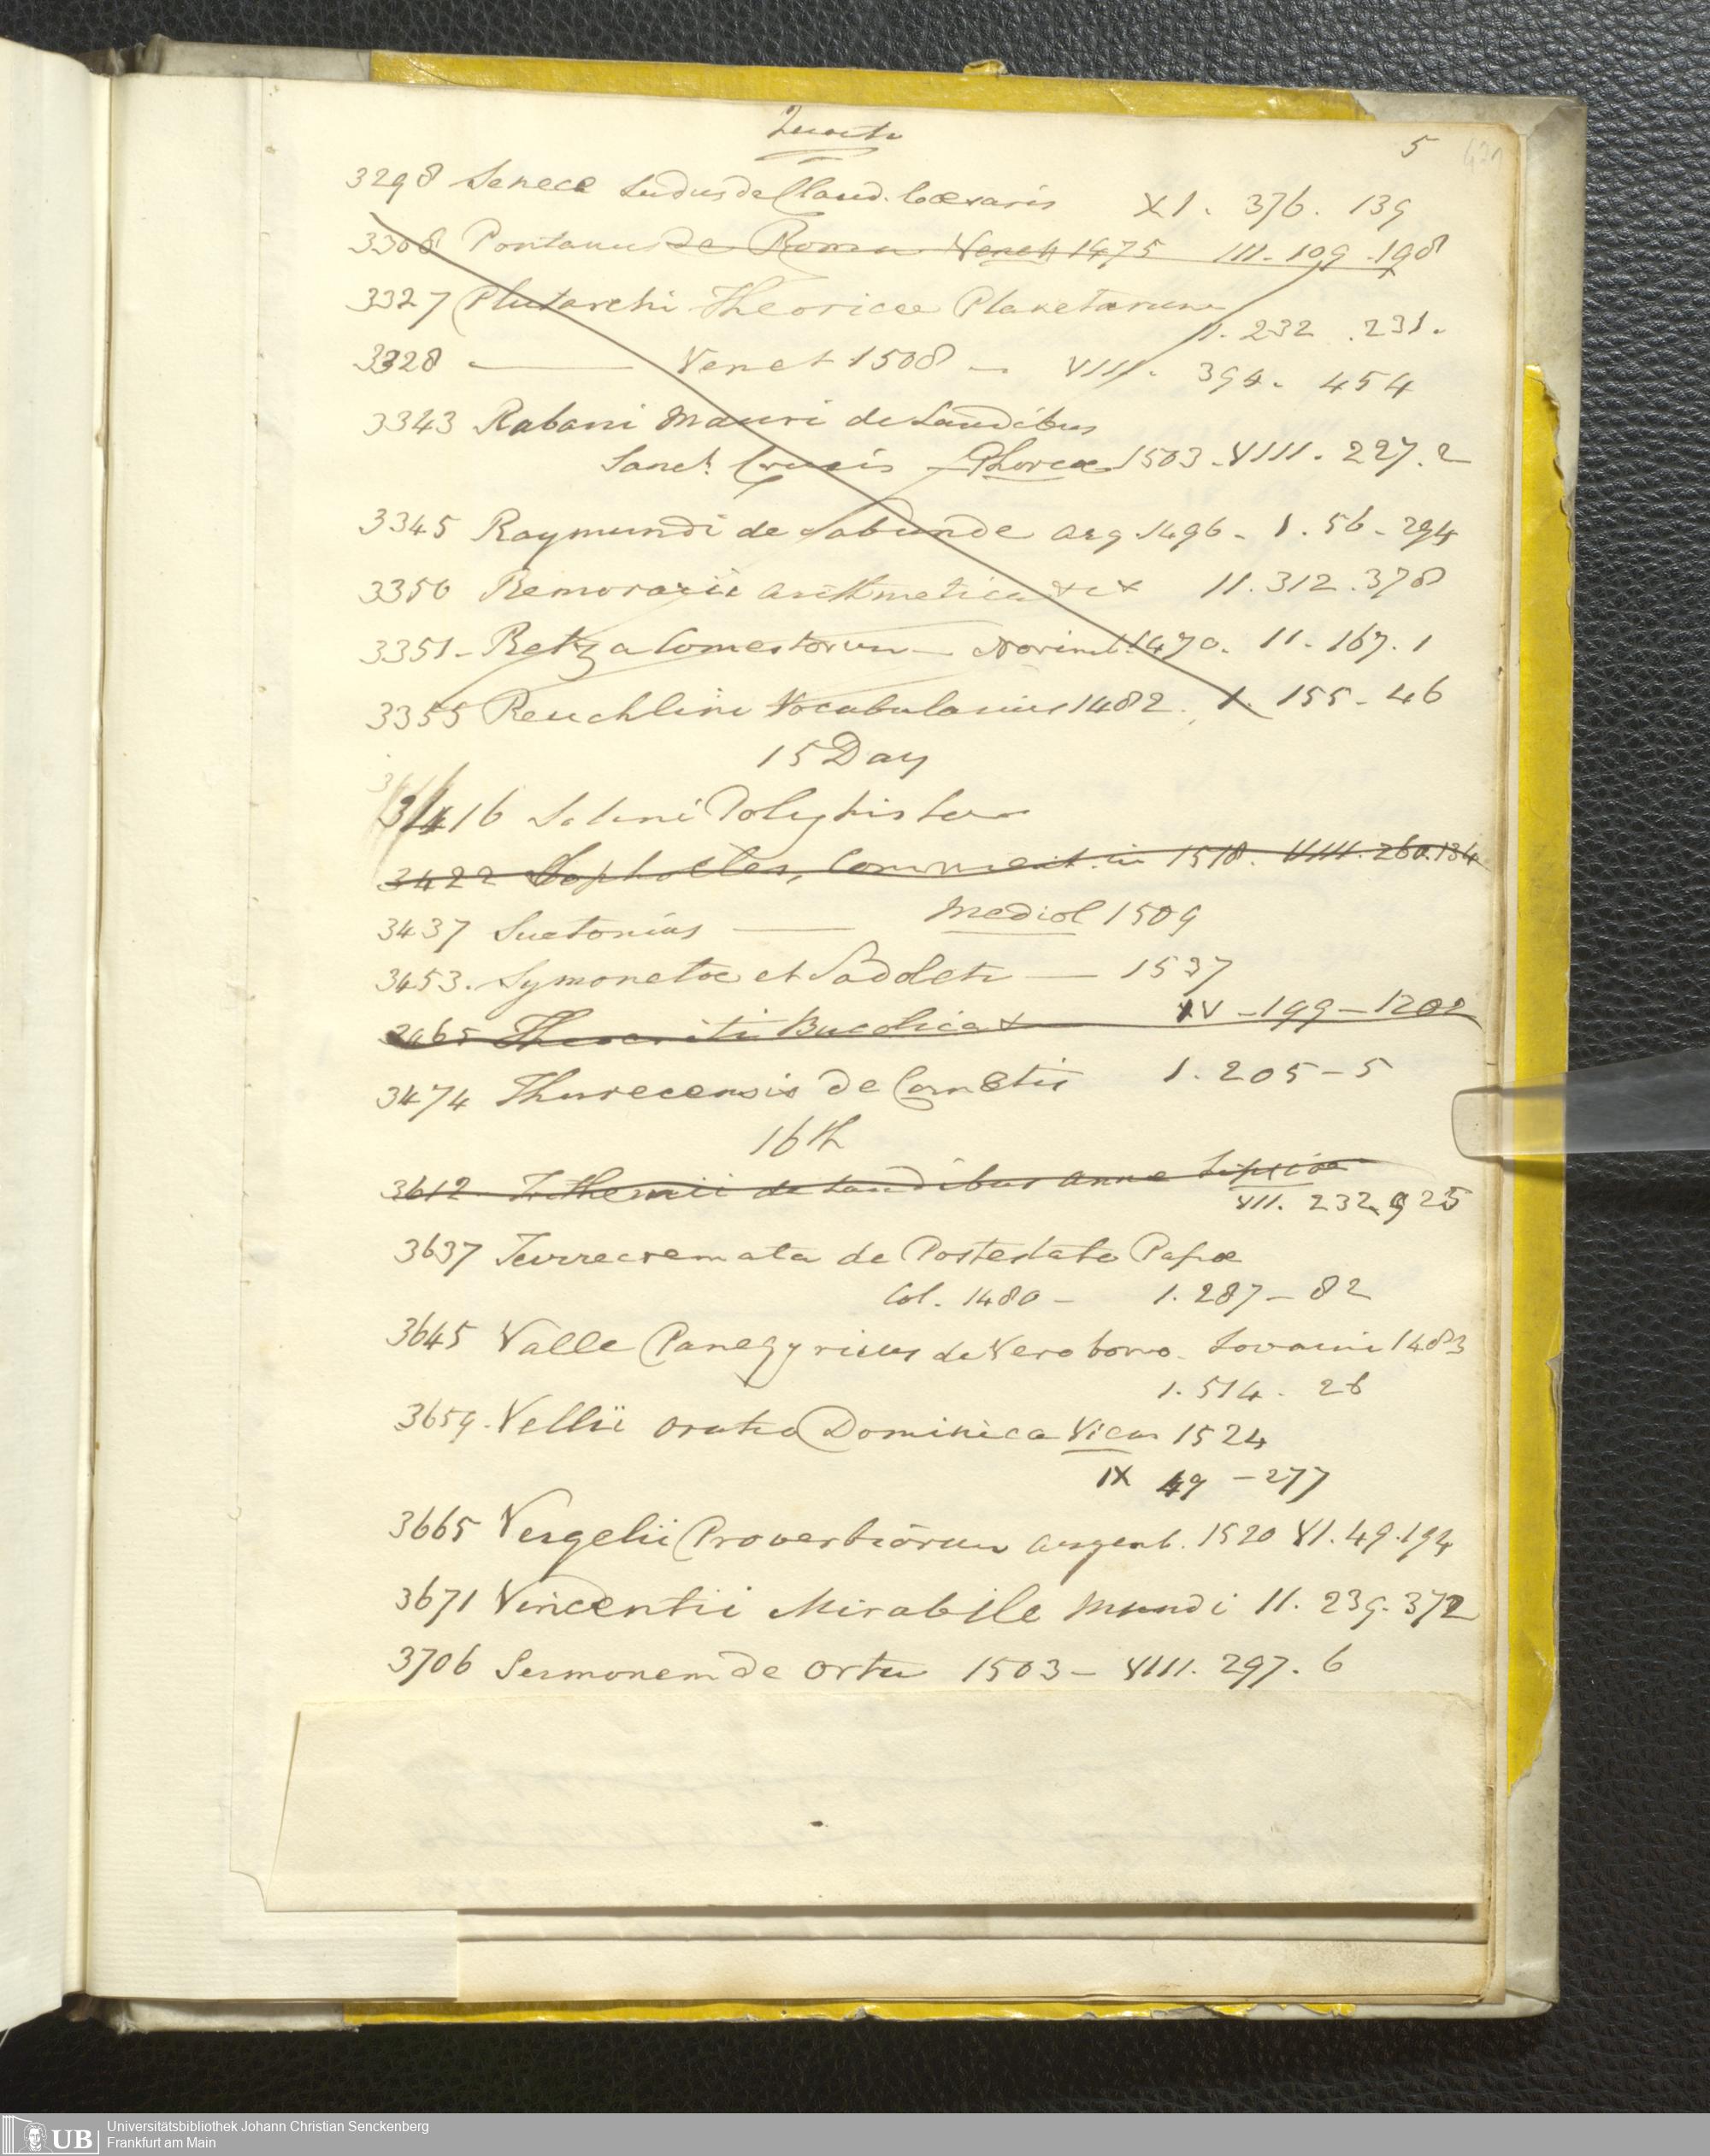 Quarto
5
3298 Senecæ Ludus de Claud. Cæsaris XI. 376. 139
3308 Pontanus de Roma Venet 1475 III. 109. 198
3327 Plutarchi Theoricæ Planetarum
II. 232. 231.
3328 — Venet 1508 — VIII. 394. 454
3343 Rabani Mauri de Laudibus
Sanct. Crucis Phorcæ 1503. VIII. 227. 2
3345 Raymundi de Sabunde Arg. 1496 - 1. 56 - 294
3350 Remorarii Arithmetica II. 312. 378
3351 - Retza Comestorum — Norimb. 1470. II. 167. 1
3355 Reuchlini Vocabularius 1482. 1. 155 - 46
15 Day
3416 Solini Polyhistor
3422 Sophocles, Comment. in 1518. VIII. 260. 134
3437 Suetonius — Mediol 1509
3453. Symonetæ et Sadoleti — 1537
3465 Theocriti Bucolica XV - 199 - 1202
3474 Thurecensis de Cometis 1. 205 - 5
16th
3612 Trithemii de Laudibus Anne Lipsiæ
VII. 232. 925
3637 Turrecremata de Postestate Papæ
Col. 1480 - 1. 287 - 82
3645 Valle Panegyricus de Vero bono. Lovaini 1483
1. 514. 26
3659. Vellii Oratio Dominica Vien 1524
IX 49 - 277
3665 Vergelii Proverbiorum Argent. 1520 VI. 49. 194
3671 Vincentii Mirabile Mundi II. 239. 372
3706 Sermonem de Ortu 1503 - VIII. 297. 6
UB
Universitätsbibliothek Johann Christian Senckenberg
Frankfurt am Main